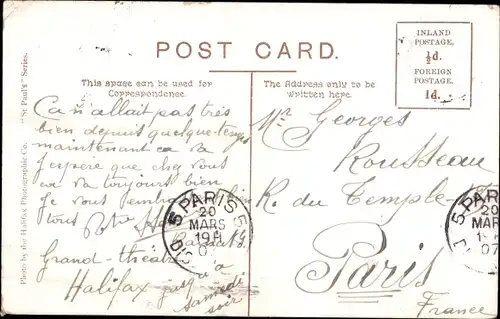 POST CARD.
INLAND
POSTAGE.
½d.
FOREIGN
POSTAGE.
1d.
This space can be used for
Correspondence.
The Address only to be
written here.
Photo by the Halifax Photographic Co. "St Paul's" Series.
Ca n'allait pas très
bien depuis quelque temps
maintenant ca va
j'espère que chez vous
ca va toujours bien
Je vous embrasse bien
tous Votre
Grand-theatre
Halifax jusqu'à
samedi
soir
Mr Georges
Rousseau
R. du Temple
Paris
France
5 PARIS 5
20
MARS
5 PARIS
20
MAR
07